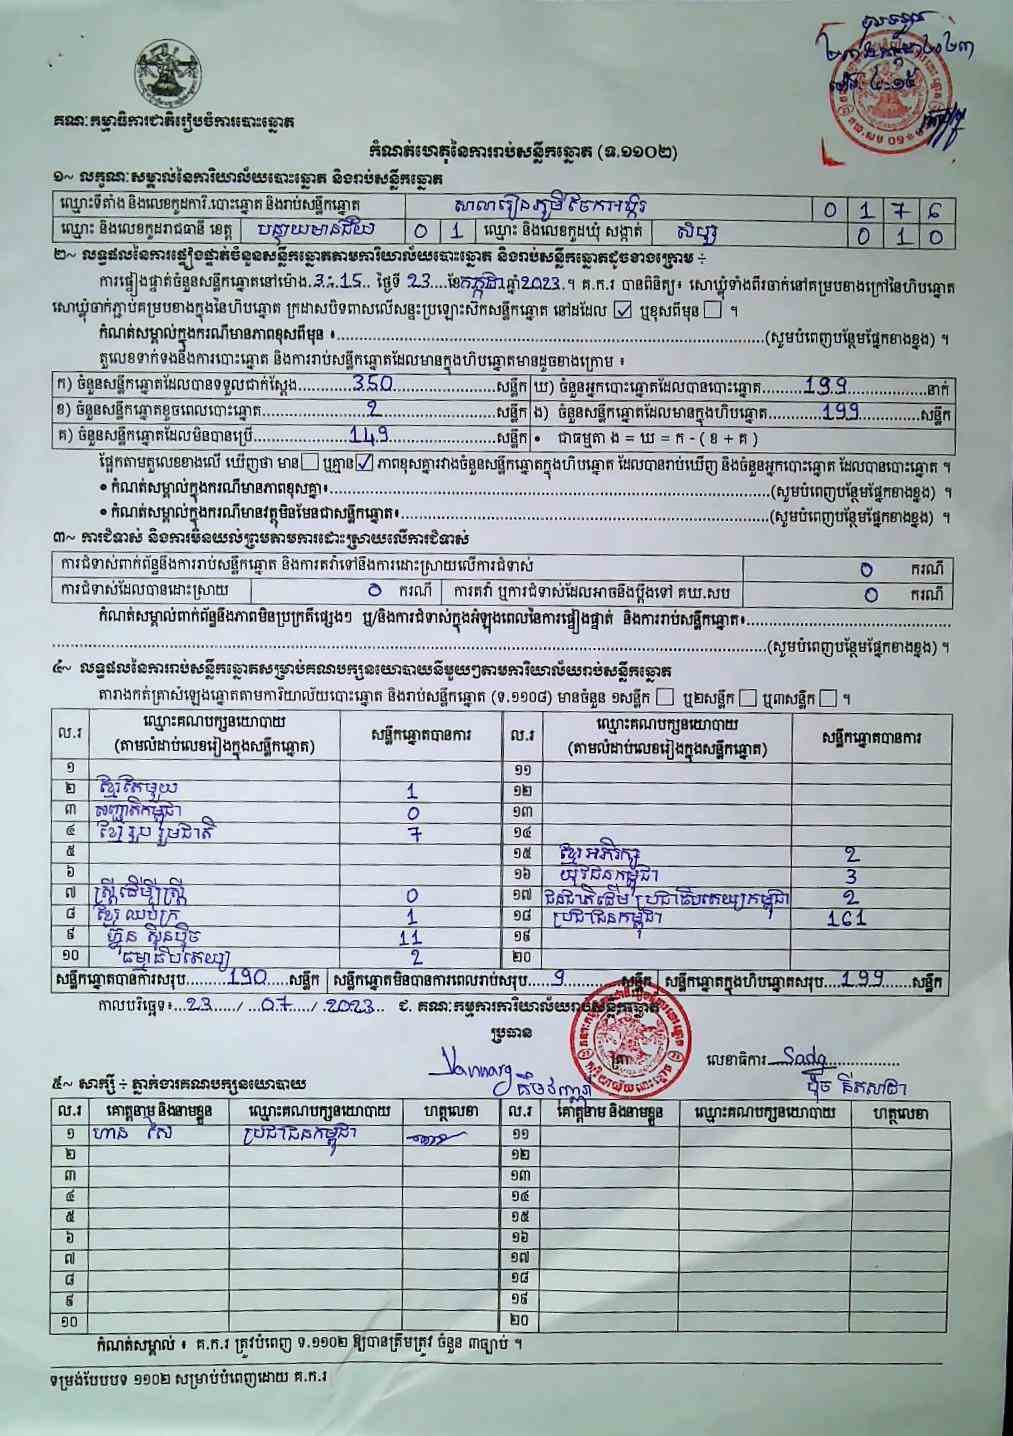 គណៈកម្មាធិការជាតិរៀបចំការបោះឆ្នោត
កំណត់ហេតុនៃការរាប់សន្លឹកឆ្នោត (ទ.១១០២)
១~ លក្ខណៈសម្គាល់នៃការិយាល័យបោះឆ្នោត និងរាប់សន្លឹកឆ្នោត
ឈ្មោះទីតាំង និងលេខកូដការិ.បោះឆ្នោត និងរាប់សន្លឹកឆ្នោត សាលារៀនភូមិចែកអង្ករ 0 1 7 6
ឈ្មោះ និងលេខកូដរាជធានី ខេត្ត បន្ទាយមានជ័យ 0 1 ឈ្មោះ និងលេខកូដឃុំ សង្កាត់ 0 1 0
២~ លទ្ធផលនៃការផ្ទៀងផ្ទាត់ចំនួនសន្លឹកឆ្នោតតាមការិយាល័យបោះឆ្នោត និងរាប់សន្លឹកឆ្នោតដូចខាងក្រោម ÷
ការផ្ទៀងផ្ទាត់ចំនួនសន្លឹកឆ្នោតនៅម៉ោង.3:15.. ថ្ងៃទី 23....ខែកក្កដាឆ្នាំ2023.។ គ.ក.រ បានពិនិត្យ៖ សោឃ្លុំទាំងពីរចាក់នៅគម្របខាងក្រៅនៃហិបឆ្នោត
សោឃ្លុំចាក់ភ្ជាប់គម្របខាងក្នុងនៃហិបឆ្នោត ក្រដាសបិទពាសលើសន្ទះប្រឡោះស៊កសន្លឹកឆ្នោត នៅដដែល ☑ ឬខុសពីមុន ☐ ។
កំណត់សម្គាល់ក្នុងករណីមានភាពខុសពីមុន ៖..........(សូមបំពេញបន្ថែមផ្នែកខាងខ្នង) ។
តួលេខទាក់ទងនឹងការបោះឆ្នោត និងការរាប់សន្លឹកឆ្នោតដែលមានក្នុងហិបឆ្នោតមានដូចខាងក្រោម ៖
ក) ចំនួនសន្លឹកឆ្នោតដែលបានទទួលជាក់ស្តែង..........350..........សន្លឹក ឃ) ចំនួនអ្នកបោះឆ្នោតដែលបានបោះឆ្នោត..........199..........នាក់
ខ) ចំនួនសន្លឹកឆ្នោតខូចពេលបោះឆ្នោត..........2..........សន្លឹក ង) ចំនួនសន្លឹកឆ្នោតដែលមានក្នុងហិបឆ្នោត..........199..........សន្លឹក
គ) ចំនួនសន្លឹកឆ្នោតដែលមិនបានប្រើ..........149..........សន្លឹក • ជាធម្មតា ង = ឃ = ក - ( ខ + គ )
ផ្អែកតាមតួលេខខាងលើ ឃើញថា មាន☐ ឬគ្មាន☑ ភាពខុសគ្នារវាងចំនួនសន្លឹកឆ្នោតក្នុងហិបឆ្នោត ដែលបានរាប់ឃើញ និងចំនួនអ្នកបោះឆ្នោត ដែលបានបោះឆ្នោត ។
• កំណត់សម្គាល់ក្នុងករណីមានភាពខុសគ្នា៖..........(សូមបំពេញបន្ថែមផ្នែកខាងខ្នង) ។
• កំណត់សម្គាល់ក្នុងករណីមានវត្ថុមិនមែនជាសន្លឹកឆ្នោត៖..........(សូមបំពេញបន្ថែមផ្នែកខាងខ្នង) ។
៣~ ការជំទាស់ និងការមិនយល់ព្រមតាមការដោះស្រាយលើការជំទាស់
ការជំទាស់ពាក់ព័ន្ធនឹងការរាប់សន្លឹកឆ្នោត និងការតវ៉ាទៅនឹងការដោះស្រាយលើការជំទាស់ 0 ករណី
ការជំទាស់ដែលបានដោះស្រាយ 0 ករណី ការតវ៉ា ឬការជំទាស់ដែលអាចនឹងប្តឹងទៅ គឃ.សប 0 ករណី
កំណត់សម្គាល់ពាក់ព័ន្ធនឹងភាពមិនប្រក្រតីផ្សេងៗ ឬ/និងការជំទាស់ក្នុងអំឡុងពេលនៃការផ្ទៀងផ្ទាត់ និងការរាប់សន្លឹកឆ្នោត៖..........
..........(សូមបំពេញបន្ថែមផ្នែកខាងខ្នង) ។
៤~ លទ្ធផលនៃការរាប់សន្លឹកឆ្នោតសម្រាប់គណបក្សនយោបាយនីមួយៗតាមការិយាល័យរាប់សន្លឹកឆ្នោត
តារាងកត់ត្រាសំឡេងឆ្នោតតាមការិយាល័យបោះឆ្នោត និងរាប់សន្លឹកឆ្នោត (ទ.១១០៨) មានចំនួន ១សន្លឹក ☐ ឬ២សន្លឹក ☐ ឬ៣សន្លឹក ☐ ។
ល.រ ឈ្មោះគណបក្សនយោបាយ (តាមលំដាប់លេខរៀងក្នុងសន្លឹកឆ្នោត) សន្លឹកឆ្នោតបានការ ល.រ ឈ្មោះគណបក្សនយោបាយ (តាមលំដាប់លេខរៀងក្នុងសន្លឹកឆ្នោត) សន្លឹកឆ្នោតបានការ
១ ១១
២ ខ្មែរតែមួយ 1 ១២
៣ សញ្ជាតិកម្ពុជា 0 ១៣
៤ ខ្មែររួបរួមជាតិ 7 ១៤
៥ ១៥ ខ្មែរអភិរក្ស 2
៦ ១៦ យុវជនកម្ពុជា 3
៧ ស្ត្រីដើម្បីស្ត្រី 0 ១៧ ជនជាតិដើមប្រជាធិបតេយ្យកម្ពុជា 2
៨ ខ្មែរឈប់ក្រ 1 ១៨ ប្រជាជនកម្ពុជា 161
៩ ហ៊្វុនស៊ិនប៉ិច 11 ១៩
១០ ធម្មាធិបតេយ្យ 2 ២០
សន្លឹកឆ្នោតបានការសរុប.....190.....សន្លឹក សន្លឹកឆ្នោតមិនបានការពេលរាប់សរុប.....9.....សន្លឹក សន្លឹកឆ្នោតក្នុងហិបឆ្នោតសរុប....199.....សន្លឹក
កាលបរិច្ឆេទ៖...23...../...07...../ 2023.. ជ. គណៈកម្មការការិយាល័យរាប់សន្លឹកឆ្នោត
ប្រធាន
លេខាធិការ
៥~ សាក្សី ÷ ភ្នាក់ងារគណបក្សនយោបាយ
ល.រ គោត្តនាម និងនាមខ្លួន ឈ្មោះគណបក្សនយោបាយ ហត្ថលេខា ល.រ គោត្តនាម និងនាមខ្លួន ឈ្មោះគណបក្សនយោបាយ ហត្ថលេខា
១ ហាន សៃ ប្រជាជនកម្ពុជា ១១
២ ១២
៣ ១៣
៤ ១៤
៥ ១៥
៦ ១៦
៧ ១៧
៨ ១៨
៩ ១៩
១០ ២០
កំណត់សម្គាល់ ៖ គ.ក.រ ត្រូវបំពេញ ទ.១១០២ ឱ្យបានត្រឹមត្រូវ ចំនួន ៣ច្បាប់ ។
ទម្រង់បែបបទ ១១០២ សម្រាប់បំពេញដោយ គ.ក.រ